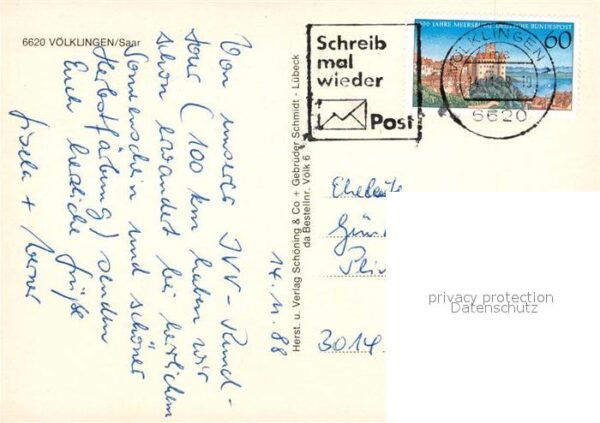 6620 VÖLKLINGEN/Saar
Von unserer IVV-Rund-
tour (100 km haben wir
schon erwandert bei herlichem
Sonnenschein und schöner
Herbstfärbung) senden
Euch herzliche Grüße
Gisela + Werner
14. 11. 88
Herst. u. Verlag Schöning & Co + Gebrüder Schmidt - Lübeck
da Bestellnr. Völk 6
Schreib
mal
wieder
Post
JAHRE MEERSBURG DEUTSCHE BUNDESPOST
60
VÖLKLINGEN 1
6620
Eheleute
3014
privacy protection
Datenschutz